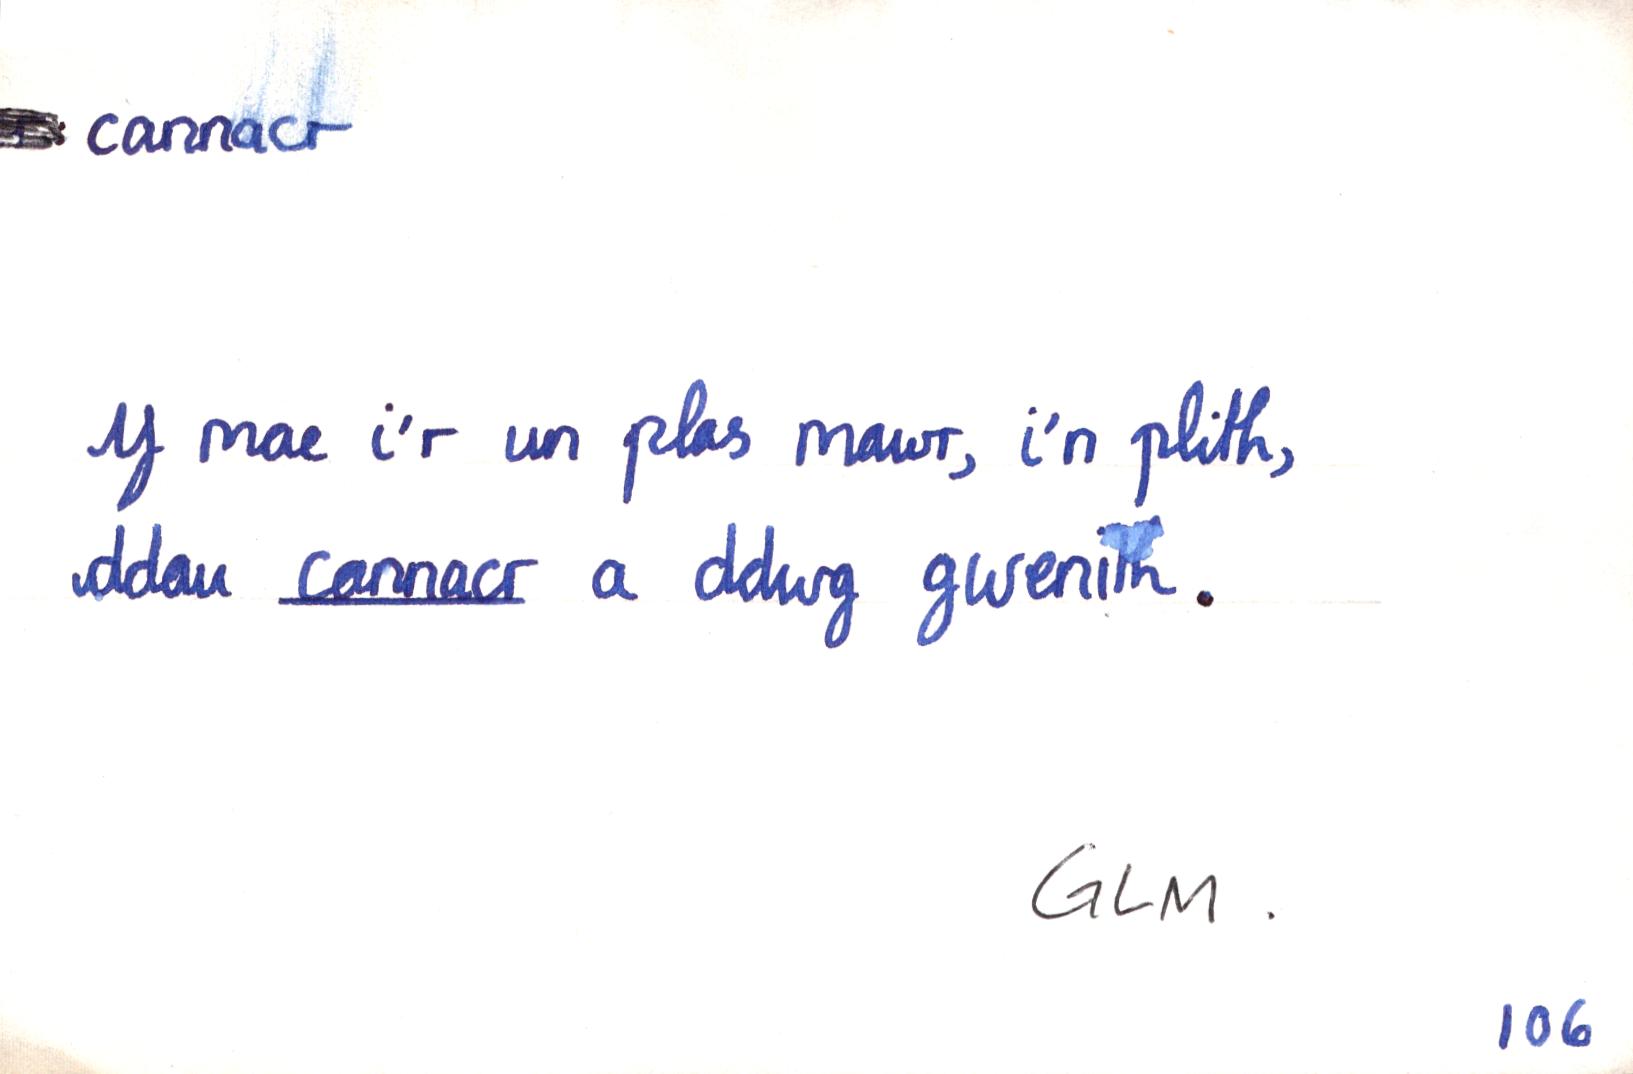 cannacr
Y mae i'r un plas mawr, i'n plith,
ddau cannacr a ddwg gwenith.
GLM.
106